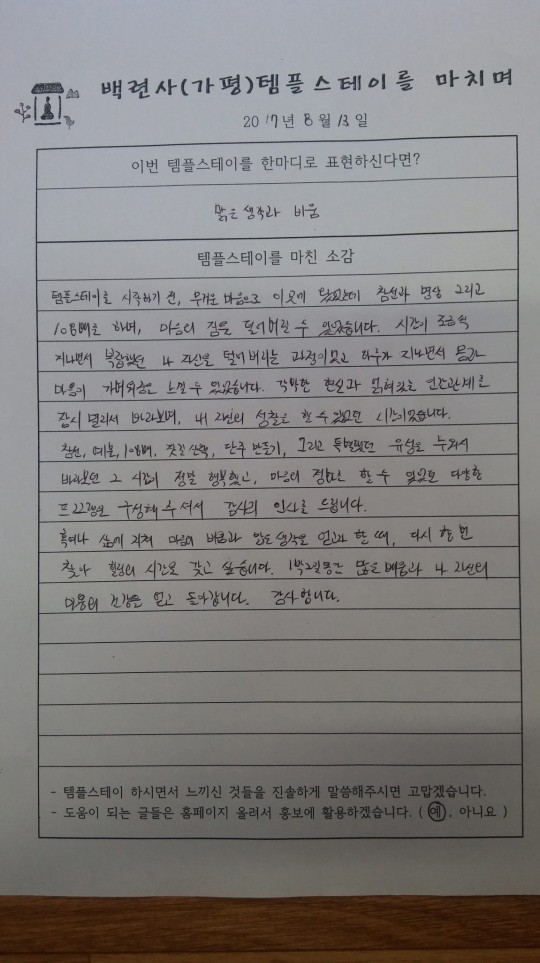 백련사(가평)템플스테이를 마치며
2017년 8월 13일
이번 템플스테이를 한마디로 표현하신다면?
맑은 생각과 비움
템플스테이를 마친 소감
템플스테이를 시작하기 전, 무거운 마음으로 이곳에 왔었는데 참선과 명상 그리고
108배를 하며, 마음의 짐을 덜어버릴 수 있었습니다. 시간이 조금씩
지나면서 복잡했던 나 자신을 덜어버리는 과정이었고 하루가 지나면서 몸과
마음이 가벼워짐을 느낄 수 있었습니다. 각박한 현실과 얽혀있는 인간관계를
잠시 멀리서 바라보며, 내 자신의 성찰을 할 수 있었던 시간이었습니다.
참선, 예불, 108배, 잣길 산책, 단주 만들기, 그리고 특별했던 유성을 누워서
바라보던 그 시간이 정말 행복했고, 마음의 정화를 할 수 있었던 다양한
프로그램을 구성해 주셔서 감사의 인사를 드립니다.
혹여나 삶에 지쳐 마음의 비움과 맑은 생각을 얻고자 할 때, 다시 한 번
찾아 힐링의 시간을 갖고 싶습니다. 1박2일동안 많은 배움과 나 자신의
마음의 건강을 얻고 돌아갑니다. 감사합니다.
- 템플스테이 하시면서 느끼신 것들을 진솔하게 말씀해주시면 고맙겠습니다.
- 도움이 되는 글들은 홈페이지 올려서 홍보에 활용하겠습니다. ( 예, 아니요 )